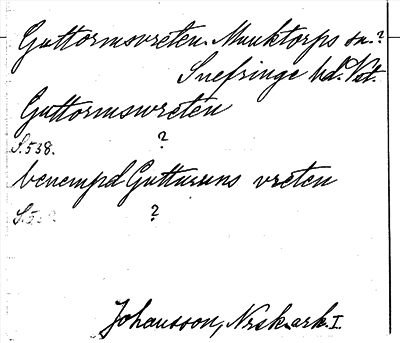 Guttormsvreten. Munktorps sn.?
Snefringe hd. Vst.
Guttormswreten
S. 538. ?
benempd Gutturms vreten
S. 5 ?
Johansson, Nrsk.ark. I.